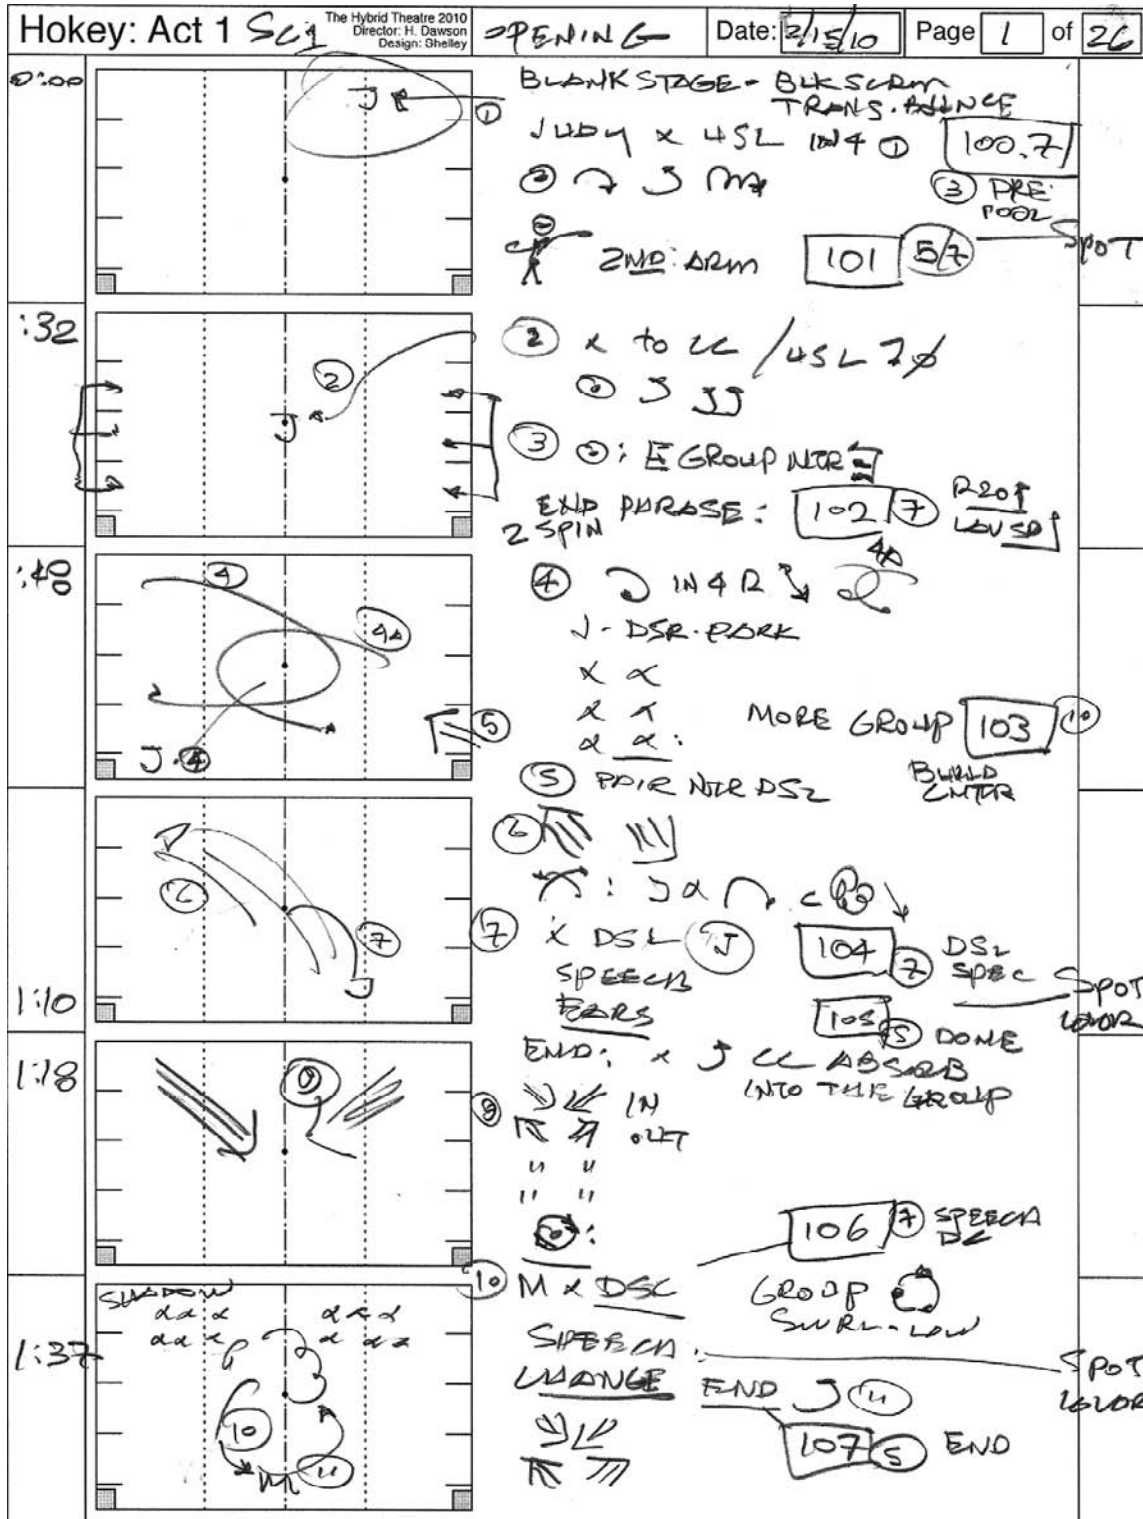 Hokey: Act 1 SC1
The Hybrid Theatre 2010
Director: H. Dawson
Design: Shelley
OPENING
Date: 2/15/10
Page 1 of 26
0:00
J
1
BLANK STAGE - BLK SCRM
TRANS.
JUDY X USL IN 4 1
100.7
3 PRE
POOL
2ND: ARM
101
5/7
SPOT
:32
2
J
2 X to CC / USL
J JJ
3
E GROUP NTR
END PHRASE:
2 SPIN
102
7
:40
4
4A
5
J 4
4 IN 4 R
4A
J - DSR
MORE GROUP
103
10
BUILD
CNTR
5 PAIR NTR DSL
6
7
J
1:10
6
7 X DSL J
SPEECH
EARS
104
7
DSL
SPEC
SPOT
COLOR
105
5
DONE
END: X J CC ABSORB
INTO THE GROUP
1:18
9
IN
OUT
" "
" "
106
7
SPEECH
DC
10 M X DSC
GROUP
SWRL - LOW
SHADOW
1:37
10
M
11
SPEECH:
CHANGE
SPOT
COLOR
END J 11
107
5
END